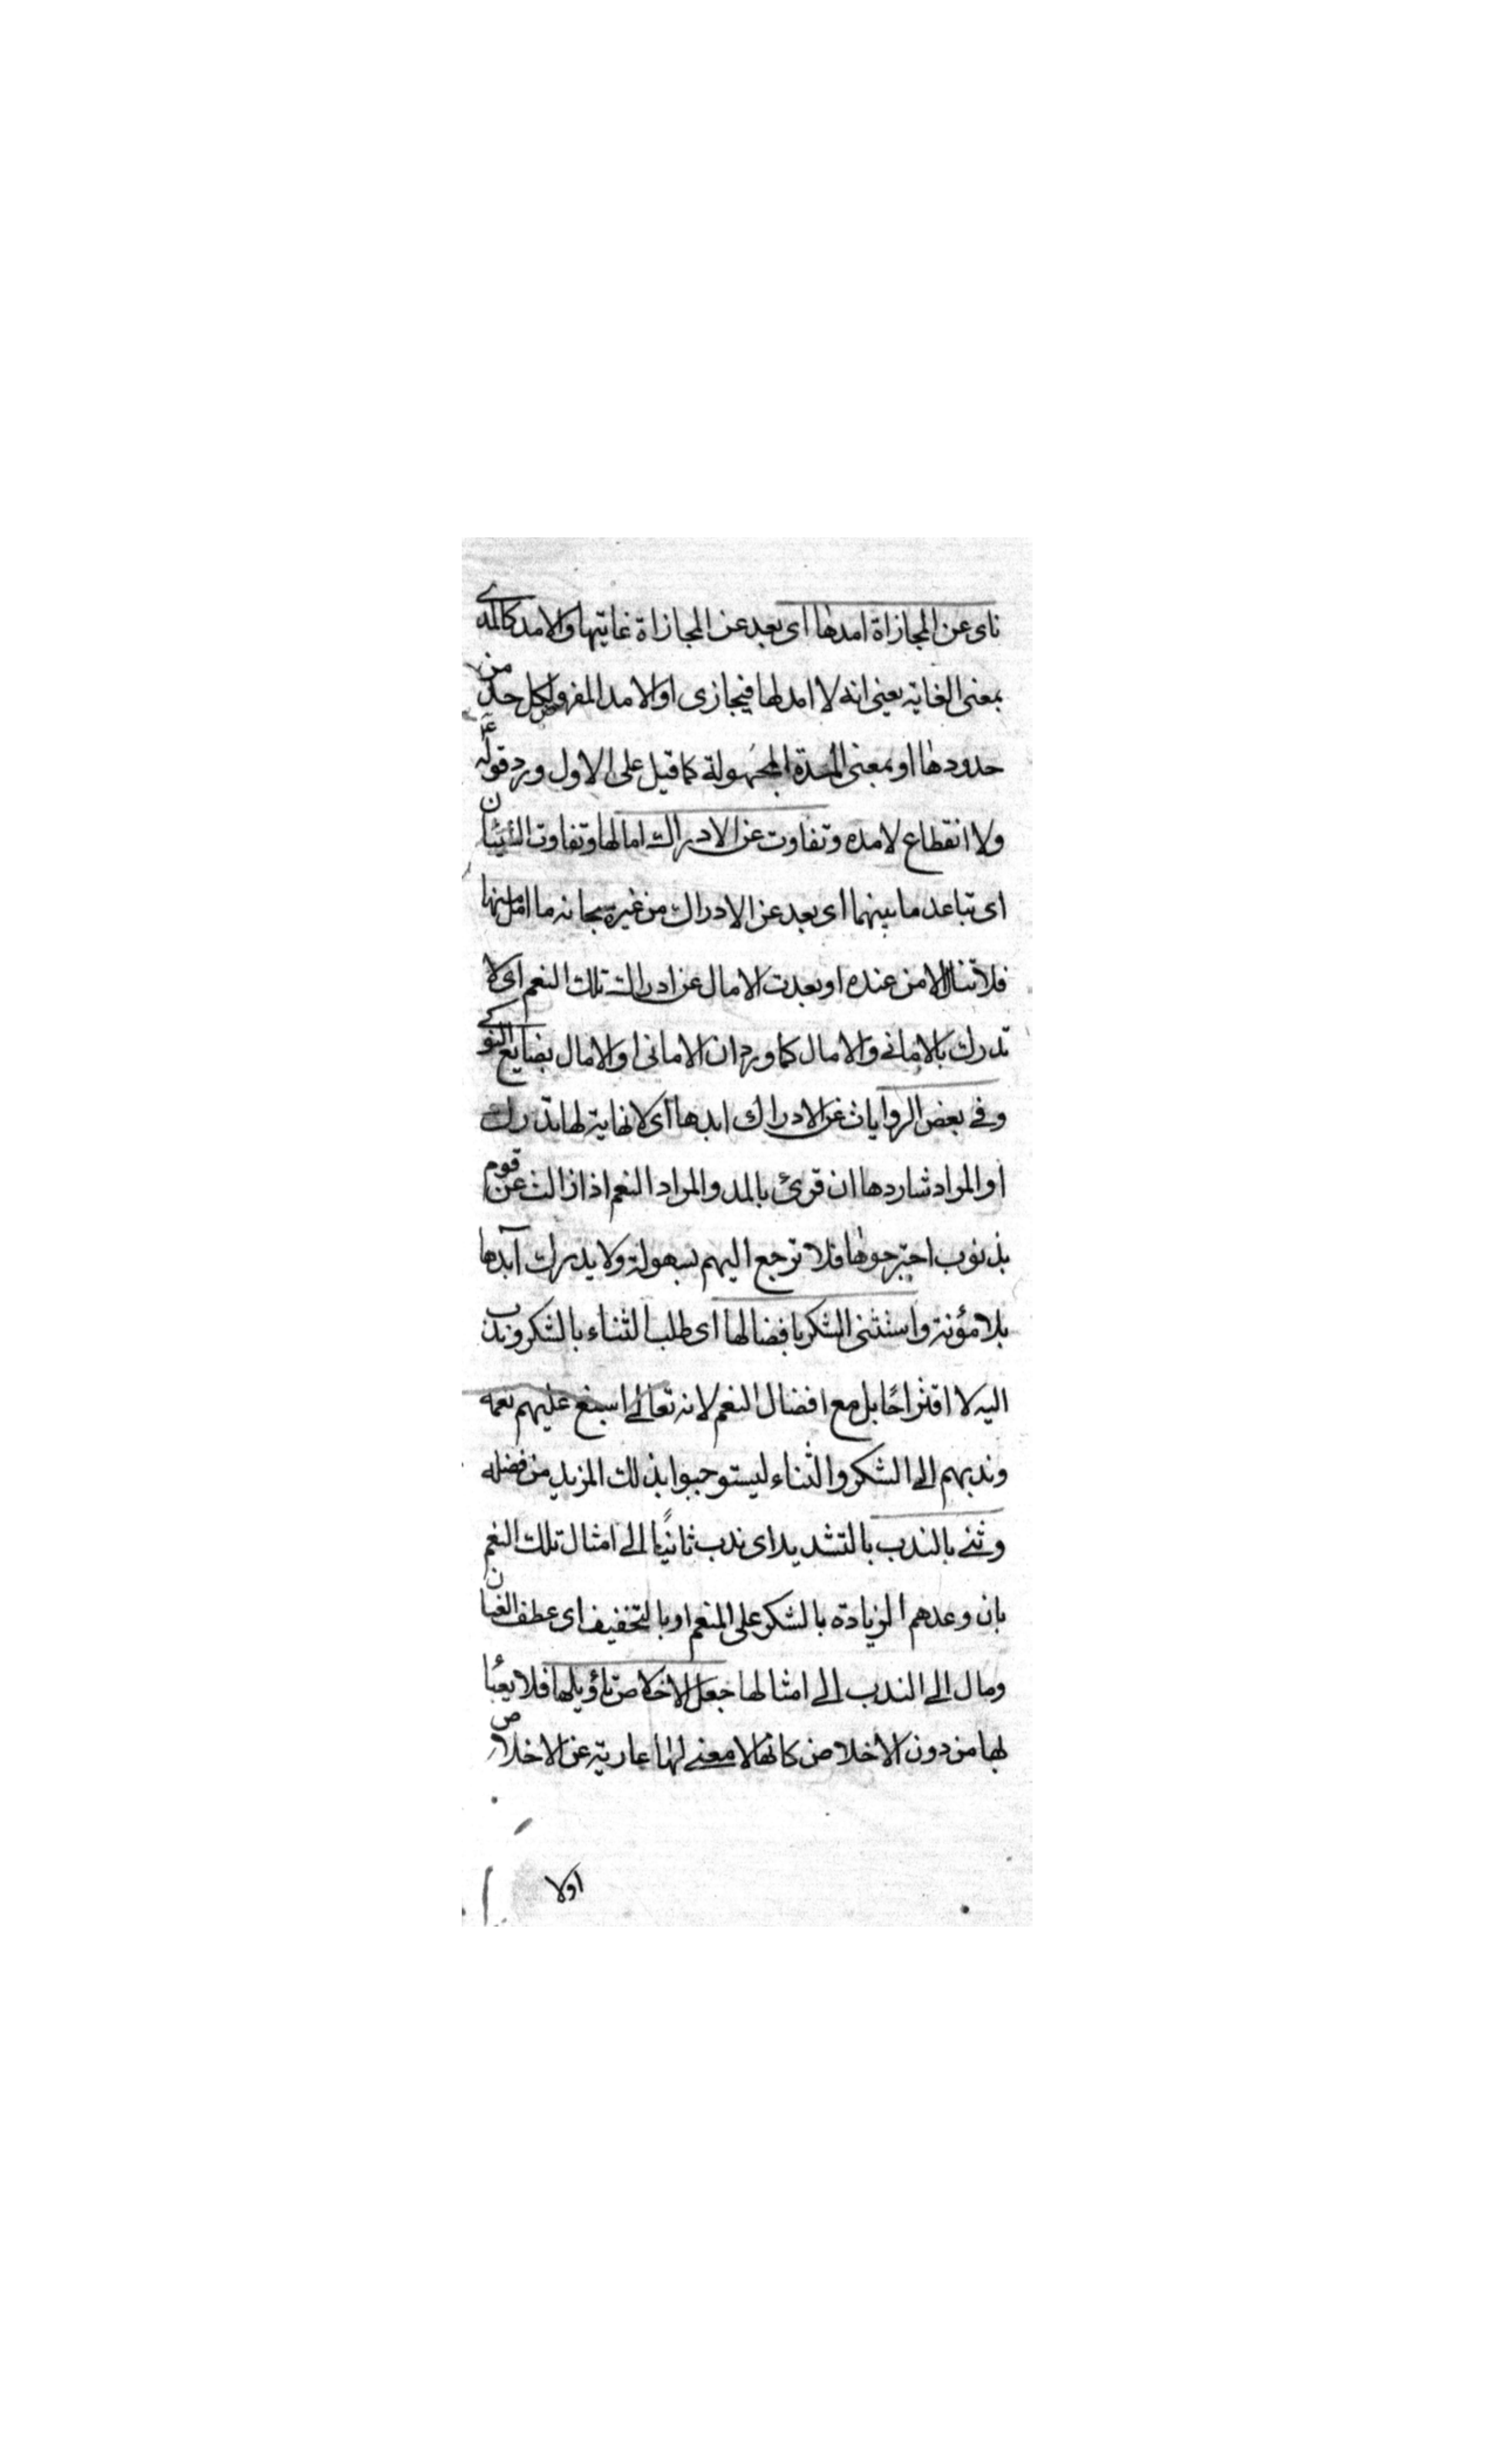 نای عن المجازاة امدها ای بعد عن المجازاة غایتها والامد کالمدی
بمعنی الغایه یعنی انه لا امد لها فیجازی او الامد المفروض لکل حد من
حدودها او بمعنی المدة المجهولة کما قیل علی الاول ورد قوله ع
ولا انقطاع لامده وتفاوت عن الادراك امالها وتفاوت الشیئان
ای تباعد ما بینهما ای بعد عن الادراك من غیره سبحانه ما امل منها
فلا تنال الا من عنده او بعدت الامال عن ادراك تلك النعم ای لا
تدرك بالامانے والامال کما ورد ان الامانی او الامال بضایع النوکے
وفے بعض الروایات عن الادراك ابدها ای لا نهایة لها تدرك
او المراد شاردها ان قرئ بالمد والمراد النعم اذا زالت عن قوم
بذنوب اجترحوها فلا ترجع الیهم بسهولة ولا یدرك آبدها
بلا مؤنة واستثنی الشکر بافضالها ای طلب الثناء بالشکر وندب
الیه لا اقتراحًا بل مع افضال النعم لانه تعالے اسبغ علیهم نعمه
وندبهم الے الشکر والثناء لیستوجبوا بذلك المزید من فضله
وثنے بالندب بالتشدید ای ندب ثانیًا الے امثال تلك النعم
بان وعدهم الزیادة بالشکر علی المنعم او بالتخفیف ای عطف العنان
ومال الے الندب الے امثالها جعل الاخلاص تأویلها فلا یعبأ
بها من دون الاخلاص کانها لا معنے لها عاریة عن الاخلاص
اولا